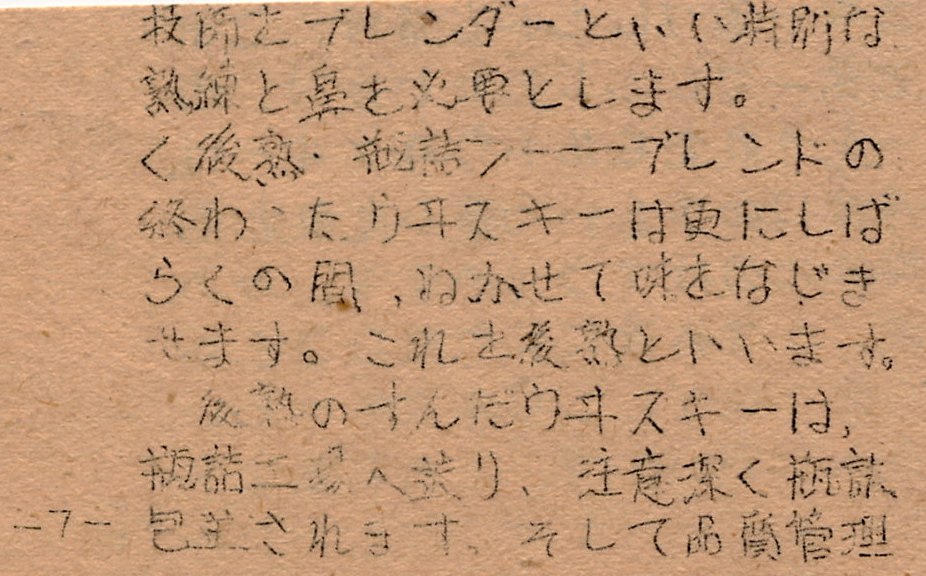 技師をブレンダーといい特別な
熟練と鼻を必要とします。
く後熟・瓶詰〉――ブレンドの
終わったウヰスキーは更にしば
らくの間、ねかせて味をなじま
せます。これを後熟といいます。
後熟のすんだウヰスキーは、
瓶詰工場へ送り、注意深く瓶詰、
包装されます。そして品質管理
-7-